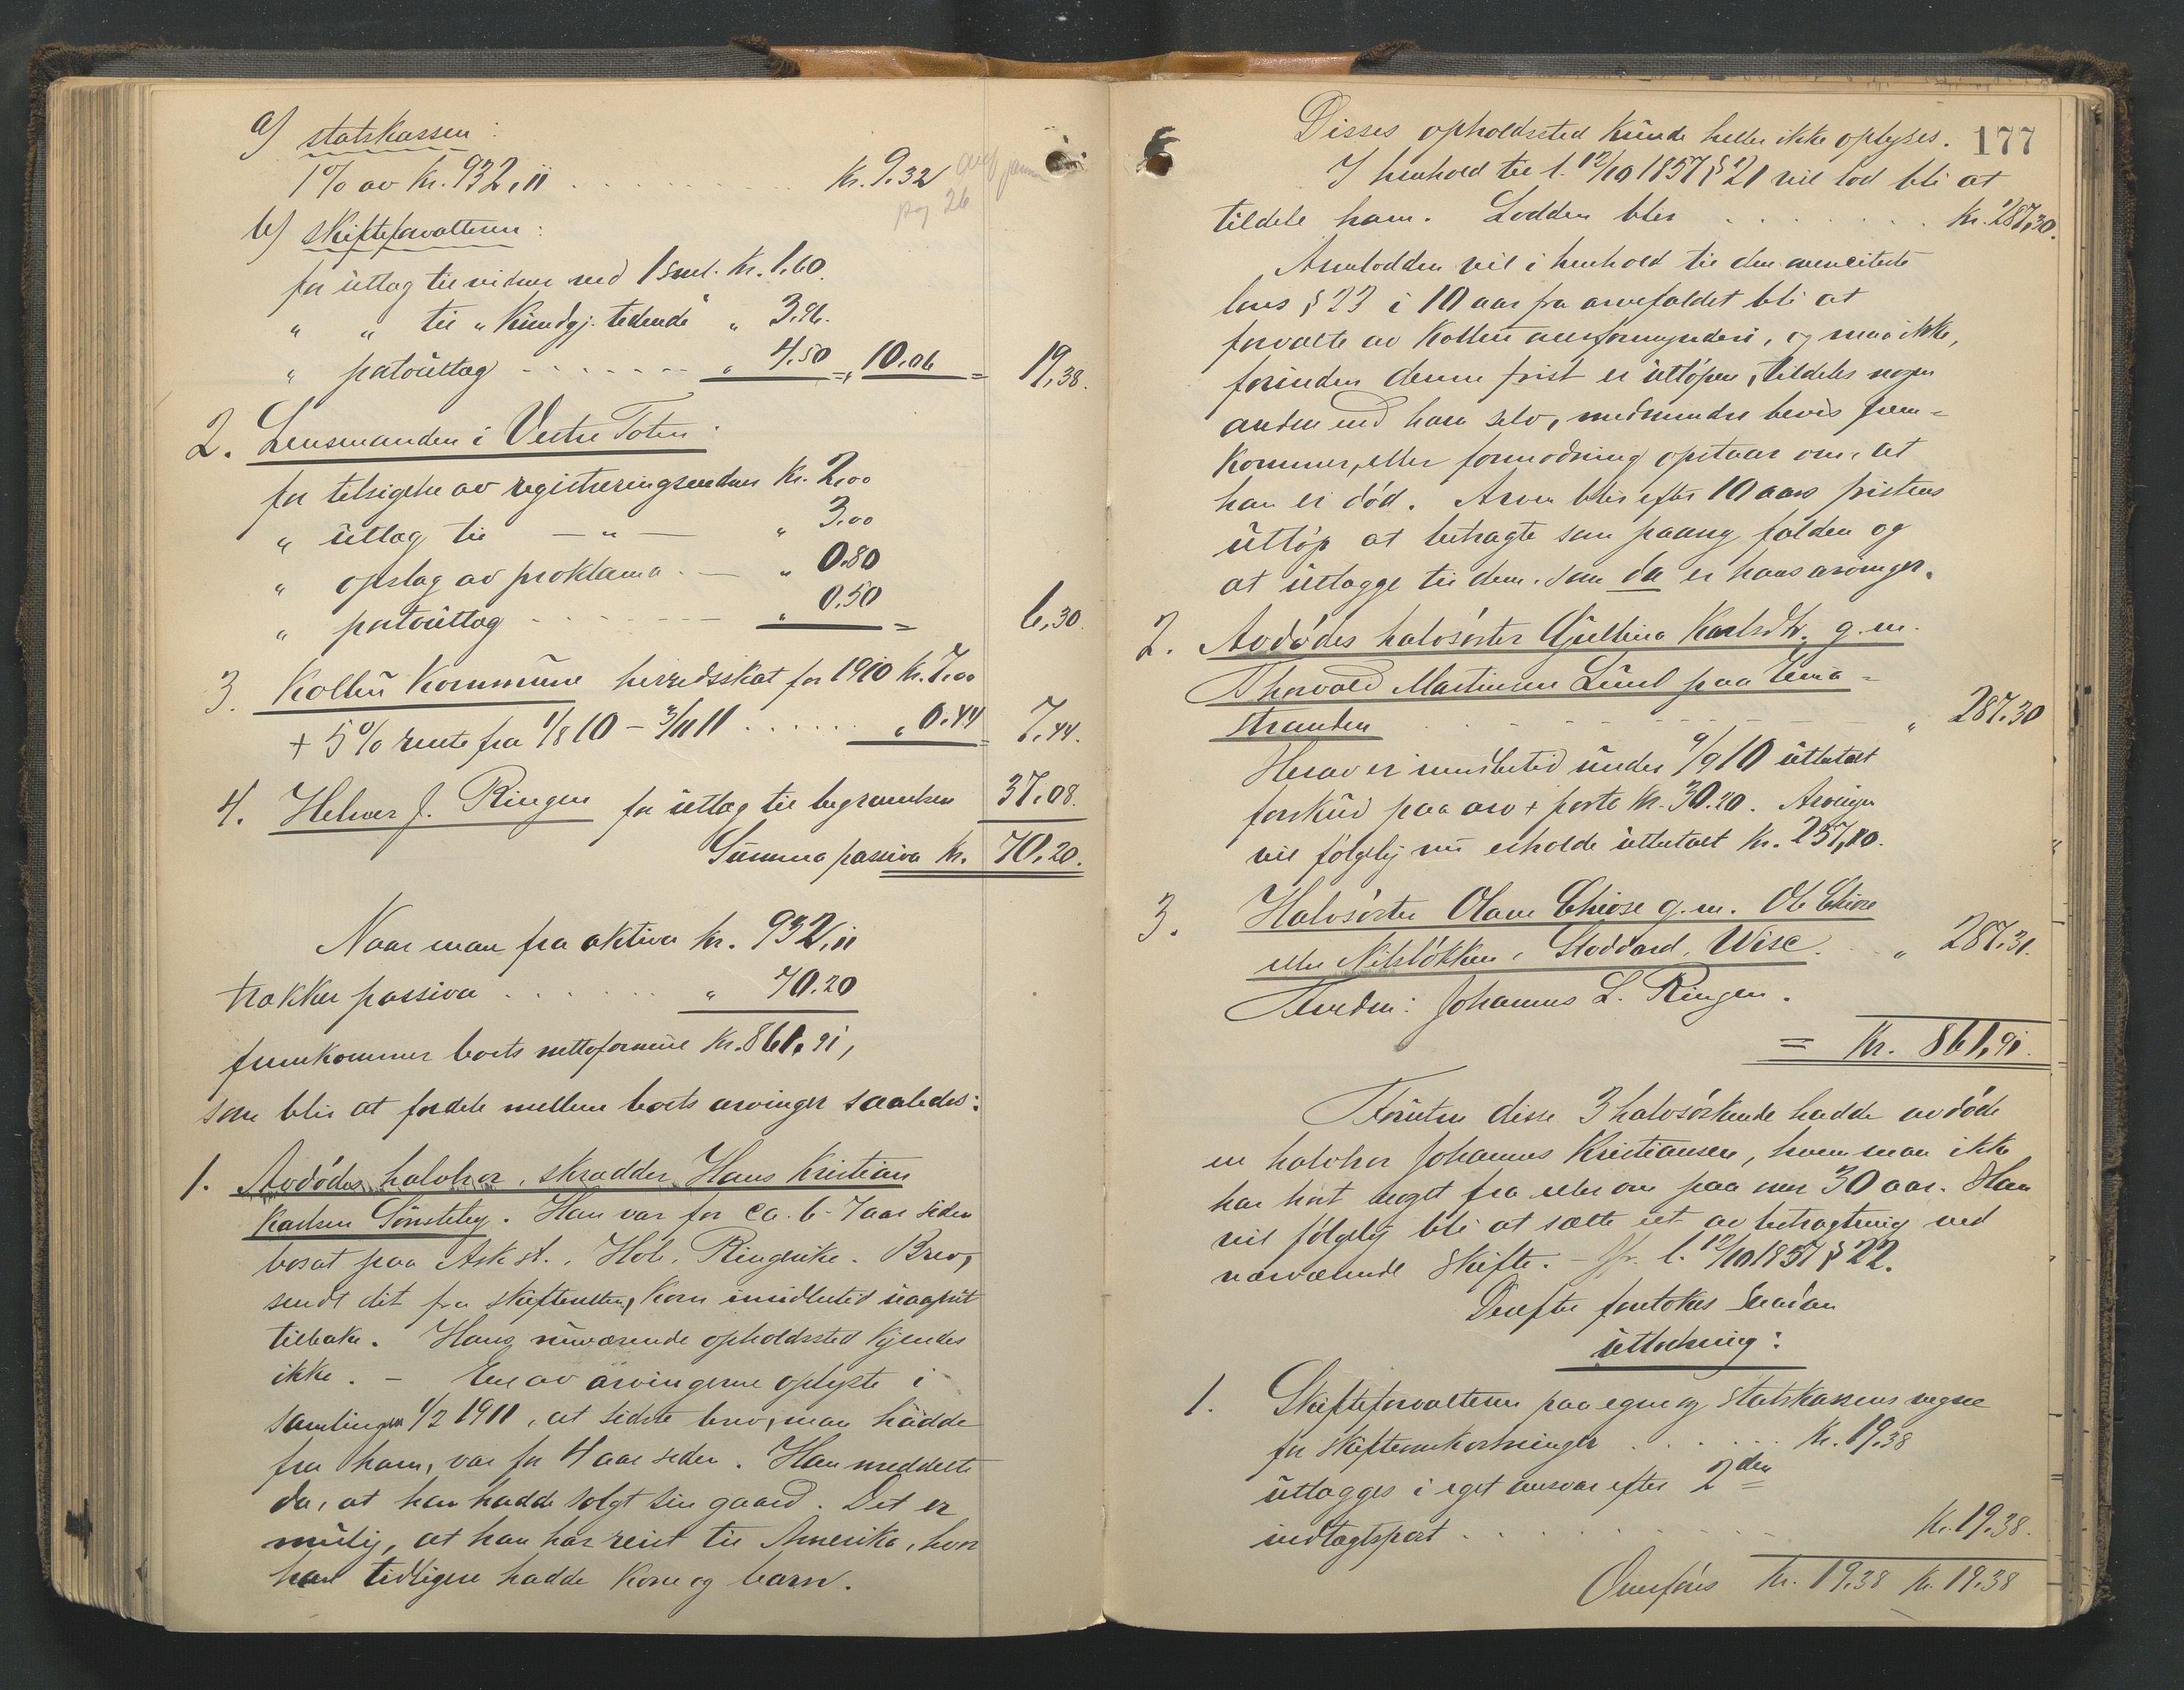 a) statskassen:
1% av kr. 932,11 . . . . . . . . . . kr. 9.32
pag 26
b) skifteforvalteren:
for utlæg til vidner ved 1 saml. kr. 1.60.
„ „ til „Kundgj. tidende" „ 3.96.
„ portoutlæg - - - - - - „ 4.50 = „ 10.06 = 19,38.
2. Lensmanden i Vestre Toten:
for tilsigelse av registreringsvidner kr. 2,00
„ utlæg til — „ — „ 3,00
„ opslag av proklama . — „ 0.80
„ portoutlæg - - - - - - „ 0.50 = 6,30.
3. Kolbu kommune herredsskat for 1910 kr. 7.00
+ 5% rente fra 1/8 10 – 3/11 11 . . . . . . „ 0.44 = 7,44.
4. Helmer J. Ringen for utlæg til begravelsen 37.08.
Summa passiva kr. 70,20.
Naar man fra aktiva kr. 932,11
trækker passiva . . . . . . . „ 70.20
fremkommer boets nettoformue kr. 861,91,
som blir at fordele mellem boets arvinger saaledes:
1. Avdødes halvbror, skrædder Hans Kristian
Karlsen Sønsteby. Han var for ca. 6-7 aar siden
bosat paa Ask st., Hole, Ringerike. Brev,
sendt dit fra skifteretten, kom imidlertid uaapnet
tilbake. Hans nuværende opholdssted kjendes
ikke. – En av arvingerne oplyste i
samlingen 1/2 1911, at sidste brev, man hadde
fra ham, var for 4 aar siden. Han meddelte
da, at han hadde solgt sin gaard. Det er
mulig, at han har reist til Amerika, hvor
han tidligere hadde kone og barn.
177
Disses opholdssted kunde heller ikke oplyses.
I henhold til l. 12/10 1857 § 21 vil lod bli at
tildele ham. Lodden blir . . . . . . . . kr. 287,30.
Arvelodden vil i henhold til den ovenciterte
lovs § 23 i 10 aar fra arvefaldet bli at
forvalte av Kolbu overformynderi, og maa ikke,
forinden denne frist er utløpen, tildeles nogen
anden end ham selv, medmindre bevis frem=
kommer, eller formodning opstaar om, at
han er død. Arven blir efter 10 aars fristens
utløp at betragte som paany falden og
at utlægge til dem, som da er hans arvinger.
2. Avdødes halvsøster Gullina Karlsdtr. g. m.
Thorvald Martinsen Lund paa Eina=
stranden - - - - - - - - „ 287.30
Herav er imidlertid under 9/9 10 uttatalt
forskud paa arv + porto kr. 30.20. Arvingen
vil følgelig nu erholde utbetalt kr. 257,10.
3. Halvsøster Olave Chiose g. m. Ole Chiose
eller Nilsløkken, Stoddard, Wisc. . . „ 287.31.
Johannes L. Ringen.
= Kr. 861,91.
Foruten disse 3 halvsøskende hadde avdøde
en halvbror Johannes Kristiansen, hvem man ikke
har hørt noget fra eller om paa over 30 aar. Han
vil følgelig bli at sætte ut av betragtning ved
nærværende skifte. – Jfr. l. 12/10 1857 § 22.
Derefter foretokes saadan
utlodning:
1. Skifteforvalteren paa egne og statskassens vegne
for skifteomkostninger . . . . . . kr. 19.38
utlægges i eget ansvar efter 2den
indtægtspost . . . . . . . . . . kr. 19.38.
Overføres kr. 19.38 kr. 19.38